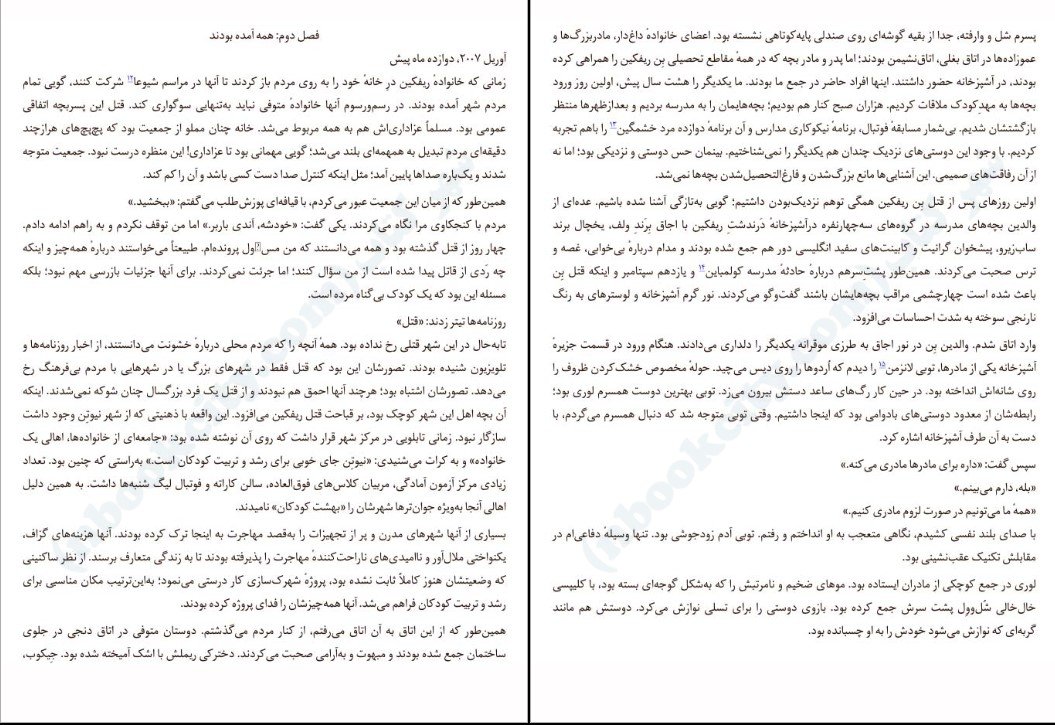 فصل دوم: همه آمده بودند
آوریل ۲۰۰۷، دوازده ماه پیش
زمانی که خانوادهٔ ریفکین درِ خانهٔ خود را به روی مردم باز کردند تا آنها در مراسم شیوعا۱۲ شرکت کنند، گویی تمام
مردم شهر آمده بودند. در رسم‌ورسوم آنها خانوادهٔ متوفی نباید به‌تنهایی سوگواری کند. قتل این پسربچه اتفاقی
عمومی بود. مسلماً عزاداری‌اش هم به همه مربوط می‌شد. خانه چنان مملو از جمعیت بود که پچ‌پچ‌های هرازچند
دقیقه‌ای مردم تبدیل به همهمه‌ای بلند می‌شد؛ گویی مهمانی بود تا عزاداری! این منظره درست نبود. جمعیت متوجه
شدند و یک‌باره صداها پایین آمد؛ مثل اینکه کنترل صدا دست کسی باشد و آن را کم کند.
همین‌طور که از میان این جمعیت عبور می‌کردم، با قیافه‌ای پوزش‌طلب می‌گفتم: «ببخشید.»
مردم با کنجکاوی مرا نگاه می‌کردند. یکی گفت: «خودشه، آندی باربر.» اما من توقف نکردم و به راهم ادامه دادم.
چهار روز از قتل گذشته بود و همه می‌دانستند که من مسٔول پرونده‌ام. طبیعتاً می‌خواستند دربارهٔ همه‌چیز و اینکه
چه ردی از قاتل پیدا شده است از من سؤال کنند؛ اما جرئت نمی‌کردند. برای آنها جزئیات بازرسی مهم نبود؛ بلکه
مسئله این بود که یک کودک بی‌گناه مرده است.
روزنامه‌ها تیتر زدند: «قتل»
تابه‌حال در این شهر قتلی رخ نداده بود. همهٔ آنچه را که مردم محلی دربارهٔ خشونت می‌دانستند، از اخبار روزنامه‌ها و
تلویزیون شنیده بودند. تصورشان این بود که قتل فقط در شهرهای بزرگ یا در شهرهایی با مردم بی‌فرهنگ رخ
می‌دهد. تصورشان اشتباه بود؛ هرچند آنها احمق هم نبودند و از قتل یک فرد بزرگسال چنان شوکه نمی‌شدند. اینکه
آن بچه اهل این شهر کوچک بود، بر قباحت قتل ریفکین می‌افزود. این واقعه با ذهنیتی که از شهر نیوتِن وجود داشت
سازگار نبود. زمانی تابلویی در مرکز شهر قرار داشت که روی آن نوشته شده بود: «جامعه‌ای از خانواده‌ها، اهالی یک
خانواده» و به کرات می‌شنیدی: «نیوتِن جای خوبی برای رشد و تربیت کودکان است.» به‌راستی که چنین بود. تعداد
زیادی مرکز آزمون آمادگی، مربیان کلاس‌های فوق‌العاده، سالن کاراته و فوتبال لیگ شنبه‌ها داشت. به همین دلیل
اهالی آنجا به‌ویژه جوان‌ترها شهرشان را «بهشت کودکان» نامیدند.
بسیاری از آنها شهرهای مدرن و پر از تجهیزات را به‌قصد مهاجرت به اینجا ترک کرده بودند. آنها هزینه‌های گزاف،
یکنواختی ملال‌آور و ناامیدی‌های ناراحت‌کنندهٔ مهاجرت را پذیرفته بودند تا به زندگی متعارف برسند. از نظر ساکنینی
که وضعیتشان هنوز کاملاً ثابت نشده بود، پروژهٔ شهرک‌سازی کار درستی می‌نمود؛ به‌این‌ترتیب مکان مناسبی برای
رشد و تربیت کودکان فراهم می‌شد. آنها همه‌چیزشان را فدای پروژه کرده بودند.
همین‌طور که از این اتاق به آن اتاق می‌رفتم، از کنار مردم می‌گذشتم. دوستان متوفی در اتاق دنجی در جلوی
ساختمان جمع شده بودند و مبهوت و به‌آرامی صحبت می‌کردند. دخترکی ریملش با اشک آمیخته شده بود. جیکوب،
پسرم شل و وارفته، جدا از بقیه گوشه‌ای روی صندلی پایه‌کوتاهی نشسته بود. اعضای خانوادهٔ داغ‌دار، مادربزرگ‌ها و
عموزاده‌ها در اتاق بغلی، اتاق‌نشیمن بودند؛ اما پدر و مادر بچه که در همهٔ مقاطع تحصیلی بِن ریفکین را همراهی کرده
بودند، در آشپزخانه حضور داشتند. اینها افراد حاضر در جمع ما بودند. ما یکدیگر را هشت سال پیش، اولین روز ورود
بچه‌ها به مهدکودک ملاقات کردیم. هزاران صبح کنار هم بودیم؛ بچه‌هایمان را به مدرسه بردیم و بعدازظهرها منتظر
بازگشتشان شدیم. بی‌شمار مسابقهٔ فوتبال، برنامهٔ نیکوکاری مدارس و آن برنامهٔ دوازده مرد خشمگین۱۳ را باهم تجربه
کردیم. با وجود این دوستی‌های نزدیک چندان هم یکدیگر را نمی‌شناختیم. بینمان حس دوستی و نزدیکی بود؛ اما نه
از آن رفاقت‌های صمیمی. این آشنایی‌ها مانع بزرگ‌شدن و فارغ‌التحصیل‌شدن بچه‌ها نمی‌شد.
اولین روزهای پس از قتل بِن ریفکین همگی توهم نزدیک‌بودن داشتیم؛ گویی به‌تازگی آشنا شده باشیم. عده‌ای از
والدین بچه‌های مدرسه در گروه‌های سه‌چهارنفره درآشپزخانهٔ دَرندشتِ ریفکین با اجاق برند ولف، یخچال برند
ساب‌زیرو، پیشخوان گرانیت و کابینت‌های سفید انگلیسی دور هم جمع شده بودند و مدام دربارهٔ بی‌خوابی، غصه و
ترس صحبت می‌کردند. همین‌طور پشت‌سرهم دربارهٔ حادثهٔ مدرسه کولمباین۱۴ و یازدهم سپتامبر و اینکه قتل بِن
باعث شده است چهارچشمی مراقب بچه‌هایشان باشند گفت‌وگو می‌کردند. نور گرم آشپزخانه و لوسترهای به رنگ
نارنجی سوخته به شدت احساسات می‌افزود.
وارد اتاق شدم. والدین بِن در نور اجاق به طرزی موقرانه یکدیگر را دلداری می‌دادند. هنگام ورود در قسمت جزیرهٔ
آشپزخانه یکی از مادرها، توبی لانزمن۱۵ را دیدم که اُردوها را روی دیس می‌چید. حولهٔ مخصوص خشک‌کردن ظروف را
روی شانه‌اش انداخته بود. در حین کار رگ‌های ساعد دستش بیرون می‌زد. توبی بهترین دوست همسرم لوری بود؛
رابطه‌شان از معدود دوستی‌های بادوامی بود که اینجا داشتیم. وقتی توبی متوجه شد که دنبال همسرم می‌گردم، با
دست به آن طرف آشپزخانه اشاره کرد.
سپس گفت: «داره برای مادرها مادری می‌کنه.»
«بله، دارم می‌بینم.»
«همهٔ ما می‌تونیم در صورت لزوم مادری کنیم.»
با صدای بلند نفسی کشیدم، نگاهی متعجب به او انداختم و رفتم. توبی آدم زودجوشی بود. تنها وسیلهٔ دفاعی‌ام در
مقابلش تکنیک عقب‌نشینی بود.
لوری در جمع کوچکی از مادران ایستاده بود. موهای ضخیم و نامرتبش را که به‌شکل گوجه‌ای بسته بود، با کلیپسی
خال‌خالی شُل‌و‌ول پشت سرش جمع کرده بود. بازوی دوستی را برای تسلی نوازش می‌کرد. دوستش هم مانند
گربه‌ای که نوازش می‌شود خودش را به او چسبانده بود.